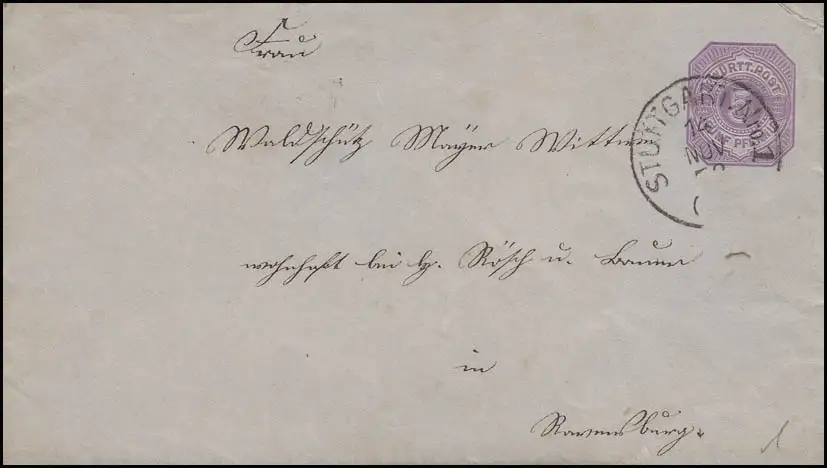 Frau
WÜRTT. POST
STUTTGART No 1
NOV
Waldschütz Mayer Wittwe
wohnhaft bei H. Rösch u. Bauer
in
Ravensburg.